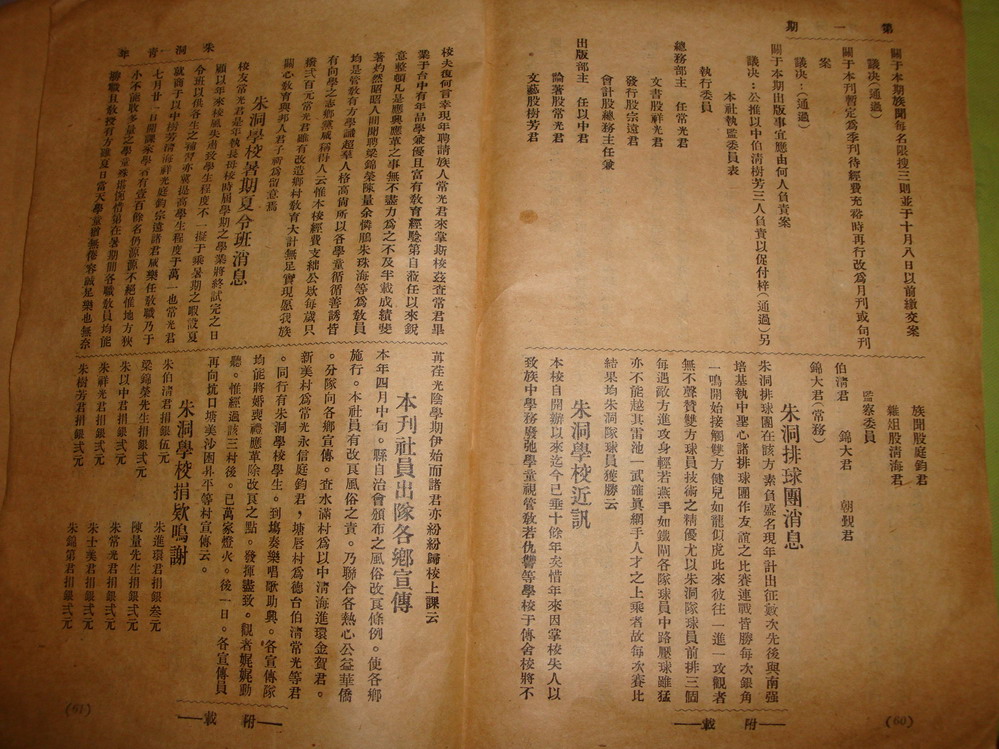 第一期
關于本期族聞每名限搜三則並于十月八日以前繳交案
議决(通過)
關于本刊暫定為季刊待經費充裕時再行改為月刊或旬刊
案
議决:(通過)
關于本期出版事宜應由何人負責案
議决:公推以中伯清樹芳三人負責以促付梓(通過)另
本社執監委員表
執行委員
總務部主 任常光君
文書股祥光君
發行股宗遠君
會計股總務主任兼
出版部主 任以中君
論著股常光君
文藝股樹芳君
族聞股庭鈞君
雜姐股清海君
監察委員
伯清君 錦大君 朝覲君
錦大君(常務)
朱洞排球團消息
朱洞排球團在該方素負盛名現年計出征數次先後與南强
培基執中聖心諸排球團作友誼之比賽連戰皆勝每次銀角
一鳴開始接觸雙方健兒如龍似虎此來彼往一進一攻觀者
無不聲贊雙方球員技術之精優尤以朱洞隊球員前排三個
每遇敵方進攻身輕若燕手如鐵閘各隊球員中路壓球雖猛
亦不能越其雷池一武誰眞網手人才之上乘者故每次賽比
結果均朱洞隊球員獲勝云
朱洞學校近訊
本校自開辦以來迄今已垂十餘年矣惜年來因掌校失人以
致族中學務廢弛學童視管敎若仇讐等學校于傳舍校將不
附載
(60)
朱洞青年
校夫復何言幸現年聘請族人常光君來掌斯校茲查常君畢
業于台中有年品學兼優且富有敎育經驗第自蒞任以來銳
意整頓凡是應興應革之事無不盡力為之不及半載成績斐
著灼然昭昭人間聞聘梁錦榮陳量余憐鵬朱珠海等為敎員
均是管敎有方學識超羣人格高尚所以各學童循循善誘皆
有向學之志鄉黨咸稱得人云惟本校經費支絀公欵每歲只
撥弍百元常光君雖有改造鄉村敎育大計無足實現愿我族
關心敎育興邦人君子祈為留意焉
朱洞學校暑期夏令班消息
校友常光君是年執長母校時屆學期之學業將終試完之日
顧以年來校風失肅致學生程度不一擬于乘暑期之暇設夏
令班以俱各生之補習亦冀提高學生程度于萬一也常光君
就商于以中樹芳清海祥光庭鈞宗遠諸君咸樂任敎職乃于
七月廿一日開課來學者有壹百餘名仍源源不絕惟地方狹
小不能收多量之學童殊堪惋惜第在暑期間各職敎員均能
勤職且敎授有方雖夏日當天學童猶無倦容誠是樂也無奈
苒荏光陰學期伊始而諸君亦紛紛歸校上課云
本刊社員出隊各鄉宣傳
本年四月中旬。縣自治會頒布之風俗改良條例。使各鄉
施行。本社員有改良風俗之責。乃聯合各熱心公益華僑
。分隊向各鄉宣傳。查水滿村為以中清海進環金賀君。
新美村為常光永信庭鈞君,塘唇村為德台伯清常光等君
。同行有朱洞學校學生。到塲奏樂唱歌助興。各宣傳隊
均能將婚喪禮應革除改良之點。發揮盡致。觀者娓娓動
聽。惟經過該三村後。已萬家燈火。後一日。各宣傳員
再向坑口塘美沙崗斗平等村宣傳云。
朱洞學校捐欵鳴謝
朱伯清君捐銀伍元
梁錦榮先生捐銀弍元
朱以中君捐銀弍元
朱祥光君捐銀弍元
朱樹芳君捐銀弍元
朱進環君捐銀叁元
陳量先生捐銀弍元
朱常光君捐銀弍元
朱士美君捐銀弍元
朱錦第君捐銀弍元
附載
(61)